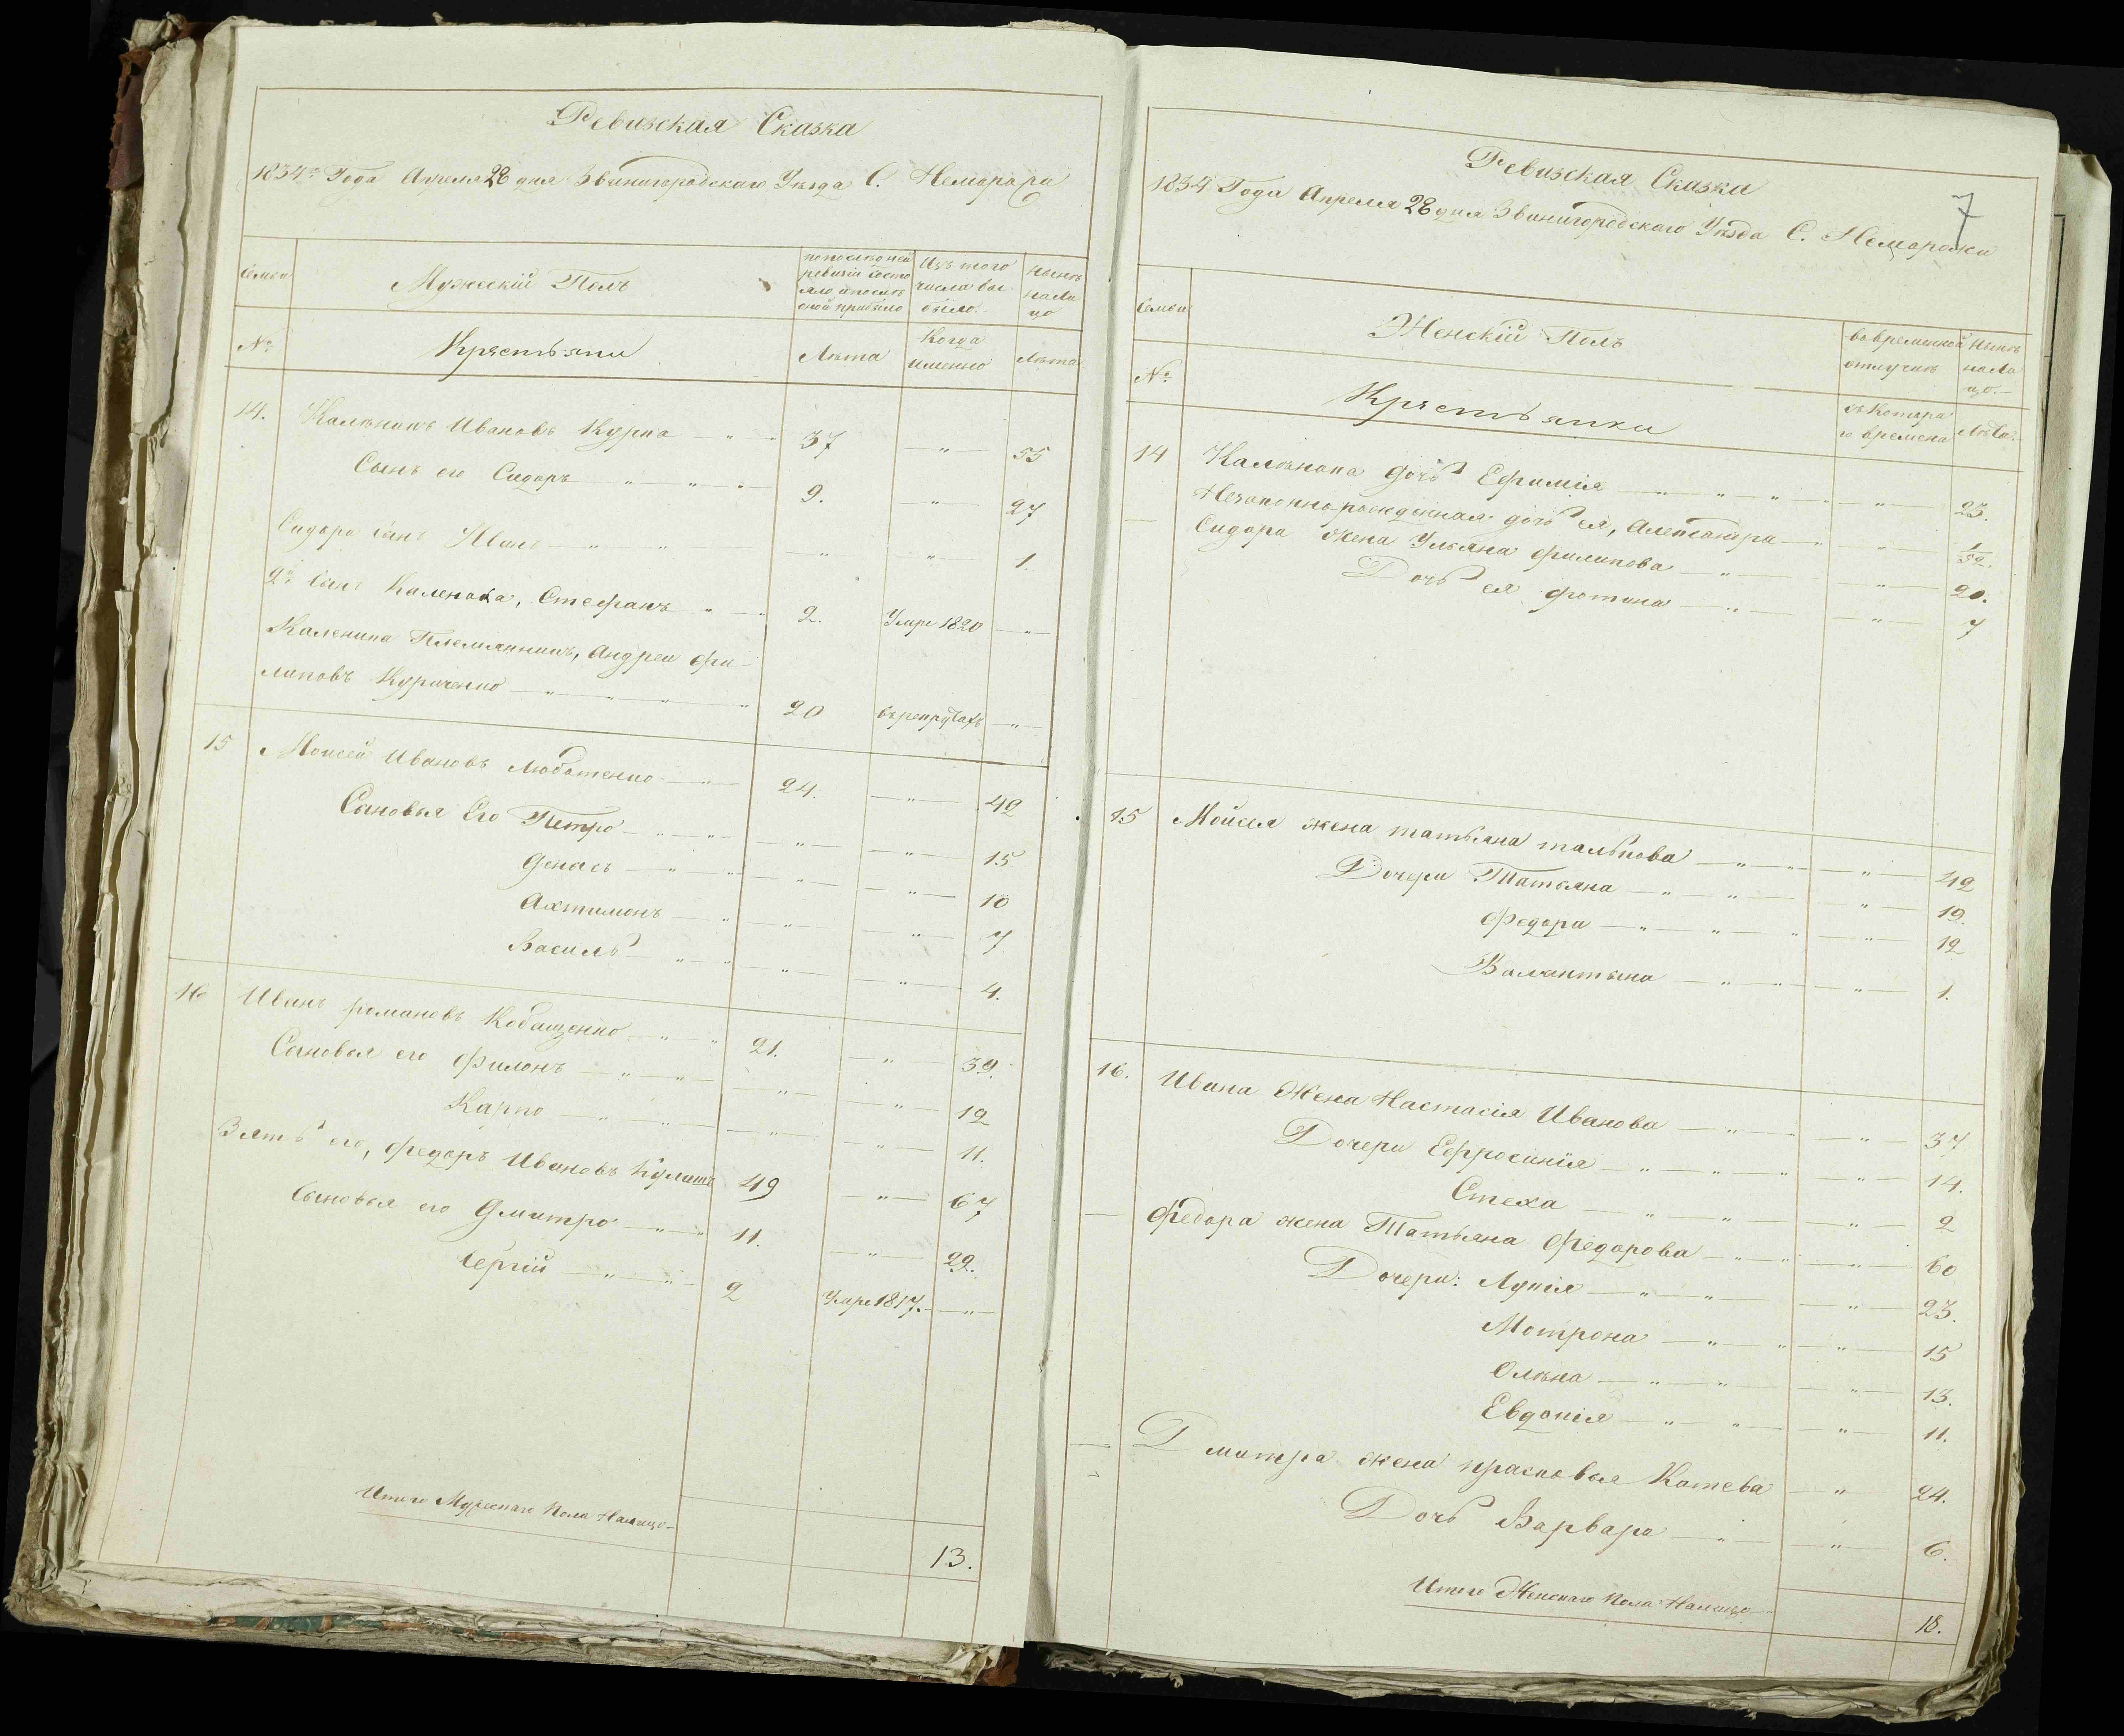 Ревизская Сказка
1834го Года Апреля 28 дня Звинигородскаго Уезда С. Неморожи
Семьи
Мужескій Полъ
по последней
ревизіи состо
яло и после
оной прибыло
Изъ того
числа вы
было.
Ныне
на ли
цо
№
Крестьяни
Лета
Когда
именно
Лета
14. Каленикъ Ивановъ Курка — " — 37 — " — 55
Сынъ его Сидоръ " " " 9. — " — 27
Сидора сынъ Иванъ — " " — " — — " — 1
2й сынъ Каленика, Стефанъ " — " 2. Умре 1820 — " —
Каленика Племянникъ, Андреи Фи-
липовъ Курченко — " — " — " — " 20 в рекрутахъ — " —
15 Моисей Ивановъ Люботенко — " — 24. — " — 42
Сыновья Его Петро — " — " — — " — — " — 15
Денисъ — " — " — — " — — " — 10
Ахтимонъ — " — — " — — " — 7
Василь — " — " — — " — — " — 4.
16 Иванъ романовъ Кобащенко — " — " 21. — " — 39.
Сыновья его Филонъ — " — " — — " — — " — 12
Карпо — " — " — — " — — " — 11.
Зять его, Федоръ Ивановъ Кулишъ 49 — " — 67
Сыновья его Дмитро — " — " 11. — " — 29.
Сергій — " — " — 2 Умре 1817. — " —
Итого Мужескаго Пола На лицо — 13.
7
Ревизская Сказка
1834 Года Апреля 28 дня Звинигородскаго Уезда С. Неморожи
Семьи
Женскій Полъ
во временной
отлучке
Ныне
на ли
цо. —
№
Крестьянки
съ котора
го времени
Лета. —
14 Каленика дочь Ефимія — " " " — — " — 23.
Незаконнорожденная дочь ея, Александра — " — " — 1/52.
— Сидора жена Ульяна Филипова — " — — " — 20.
Дочь ея Фотина — " — — " — 7
15 Мойсея жена татьяна тальнова — " — " — — " — 42
Дочери Татьяна — " — " — — " — 19.
Федора — " — " — " — " — 12
Валантына — " — " — — " — 1.
16. Ивана Жена Настасія Иванова — " — " — " — 37
Дочери Ефросинія — " — " — " — " — 14.
Стеха — " — " — — " — 2
— Федора жена Татьяна Федорова — " — " — " — 60
Дочери: Лукія — " — " — — " — 23.
Мотрона — " — " — " — 15
Олена — " — " — — " — 13.
Евдокія — " — " — — " — 11.
— Дмитра жена прасковья Котева — " — 24.
Дочь Варвара — " — — " — 6.
Итого Женскаго Пола На лицо — 18.